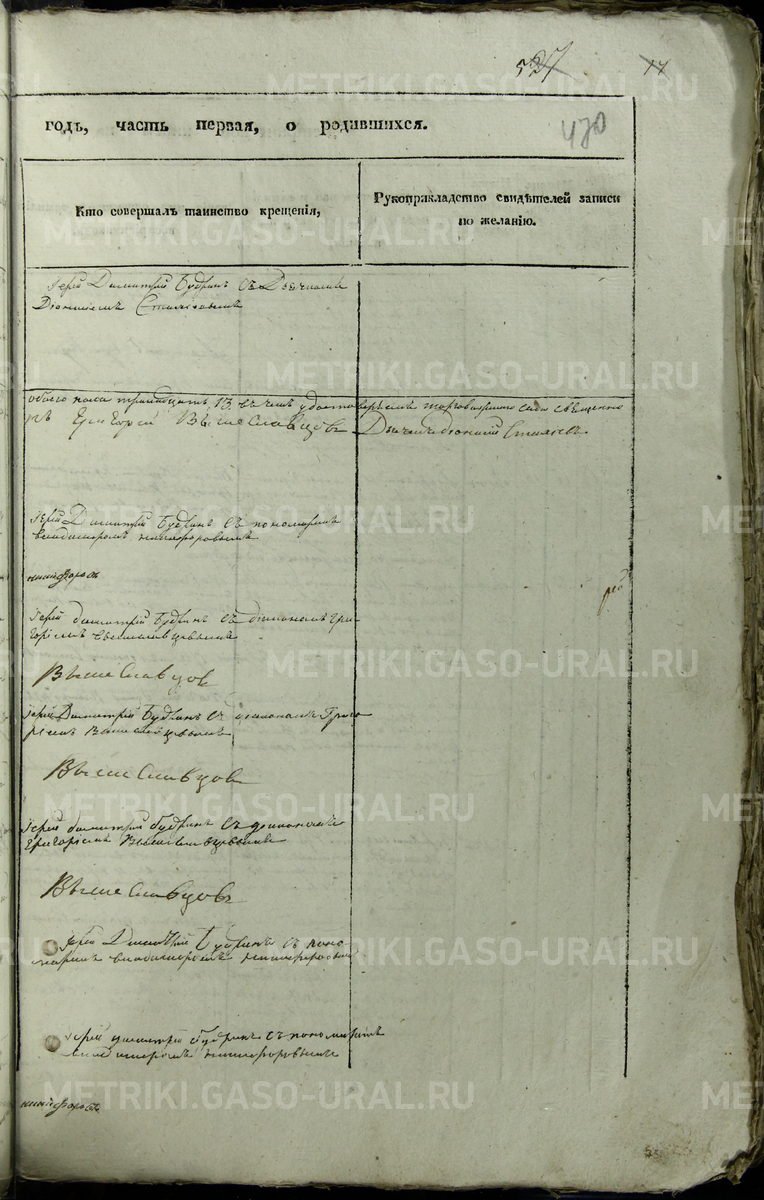 527 17
470
годъ, часть первая, о родившихся.
Кто совершалъ таинство крещенія,
Рукоприкладство свидѣтелей записи
по желанію.
Іерей Димитрій Будринъ съ Дьячкомъ
Діонисіемъ
обоего пола тринадцать 13. въ чемъ
Григорій Вышеславцовъ Дьячекъ Діонисій
Іерей Димитрій Будринъ съ пономаремъ
никифоровымъ
никифоровъ
Іерей димитрій Будринъ съ діакономъ Гри-
горіемъ вышеславцовымъ
Вышеславцовъ
Іерей Димитрій Будринъ съ діакономъ Григо
ріемъ Вышеславцовымъ
Вышеславцовъ
Іерей димитрій будринъ съ діакономъ
Григоріемъ Вышеславцовымъ
Вышеславцовъ
Іерей Димитрій Будринъ съ поно
маремъ никифоровымъ
Іерей димитрій будринъ съ пономаремъ
никифоровымъ
никифоровъ
METRIKI.GASO-URAL.RU